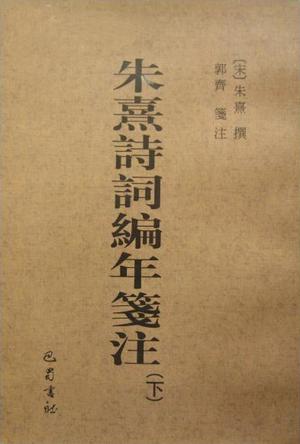 〔宋〕朱熹 撰
郭齊 箋注
朱熹詩詞編年箋注（下）
巴蜀書社